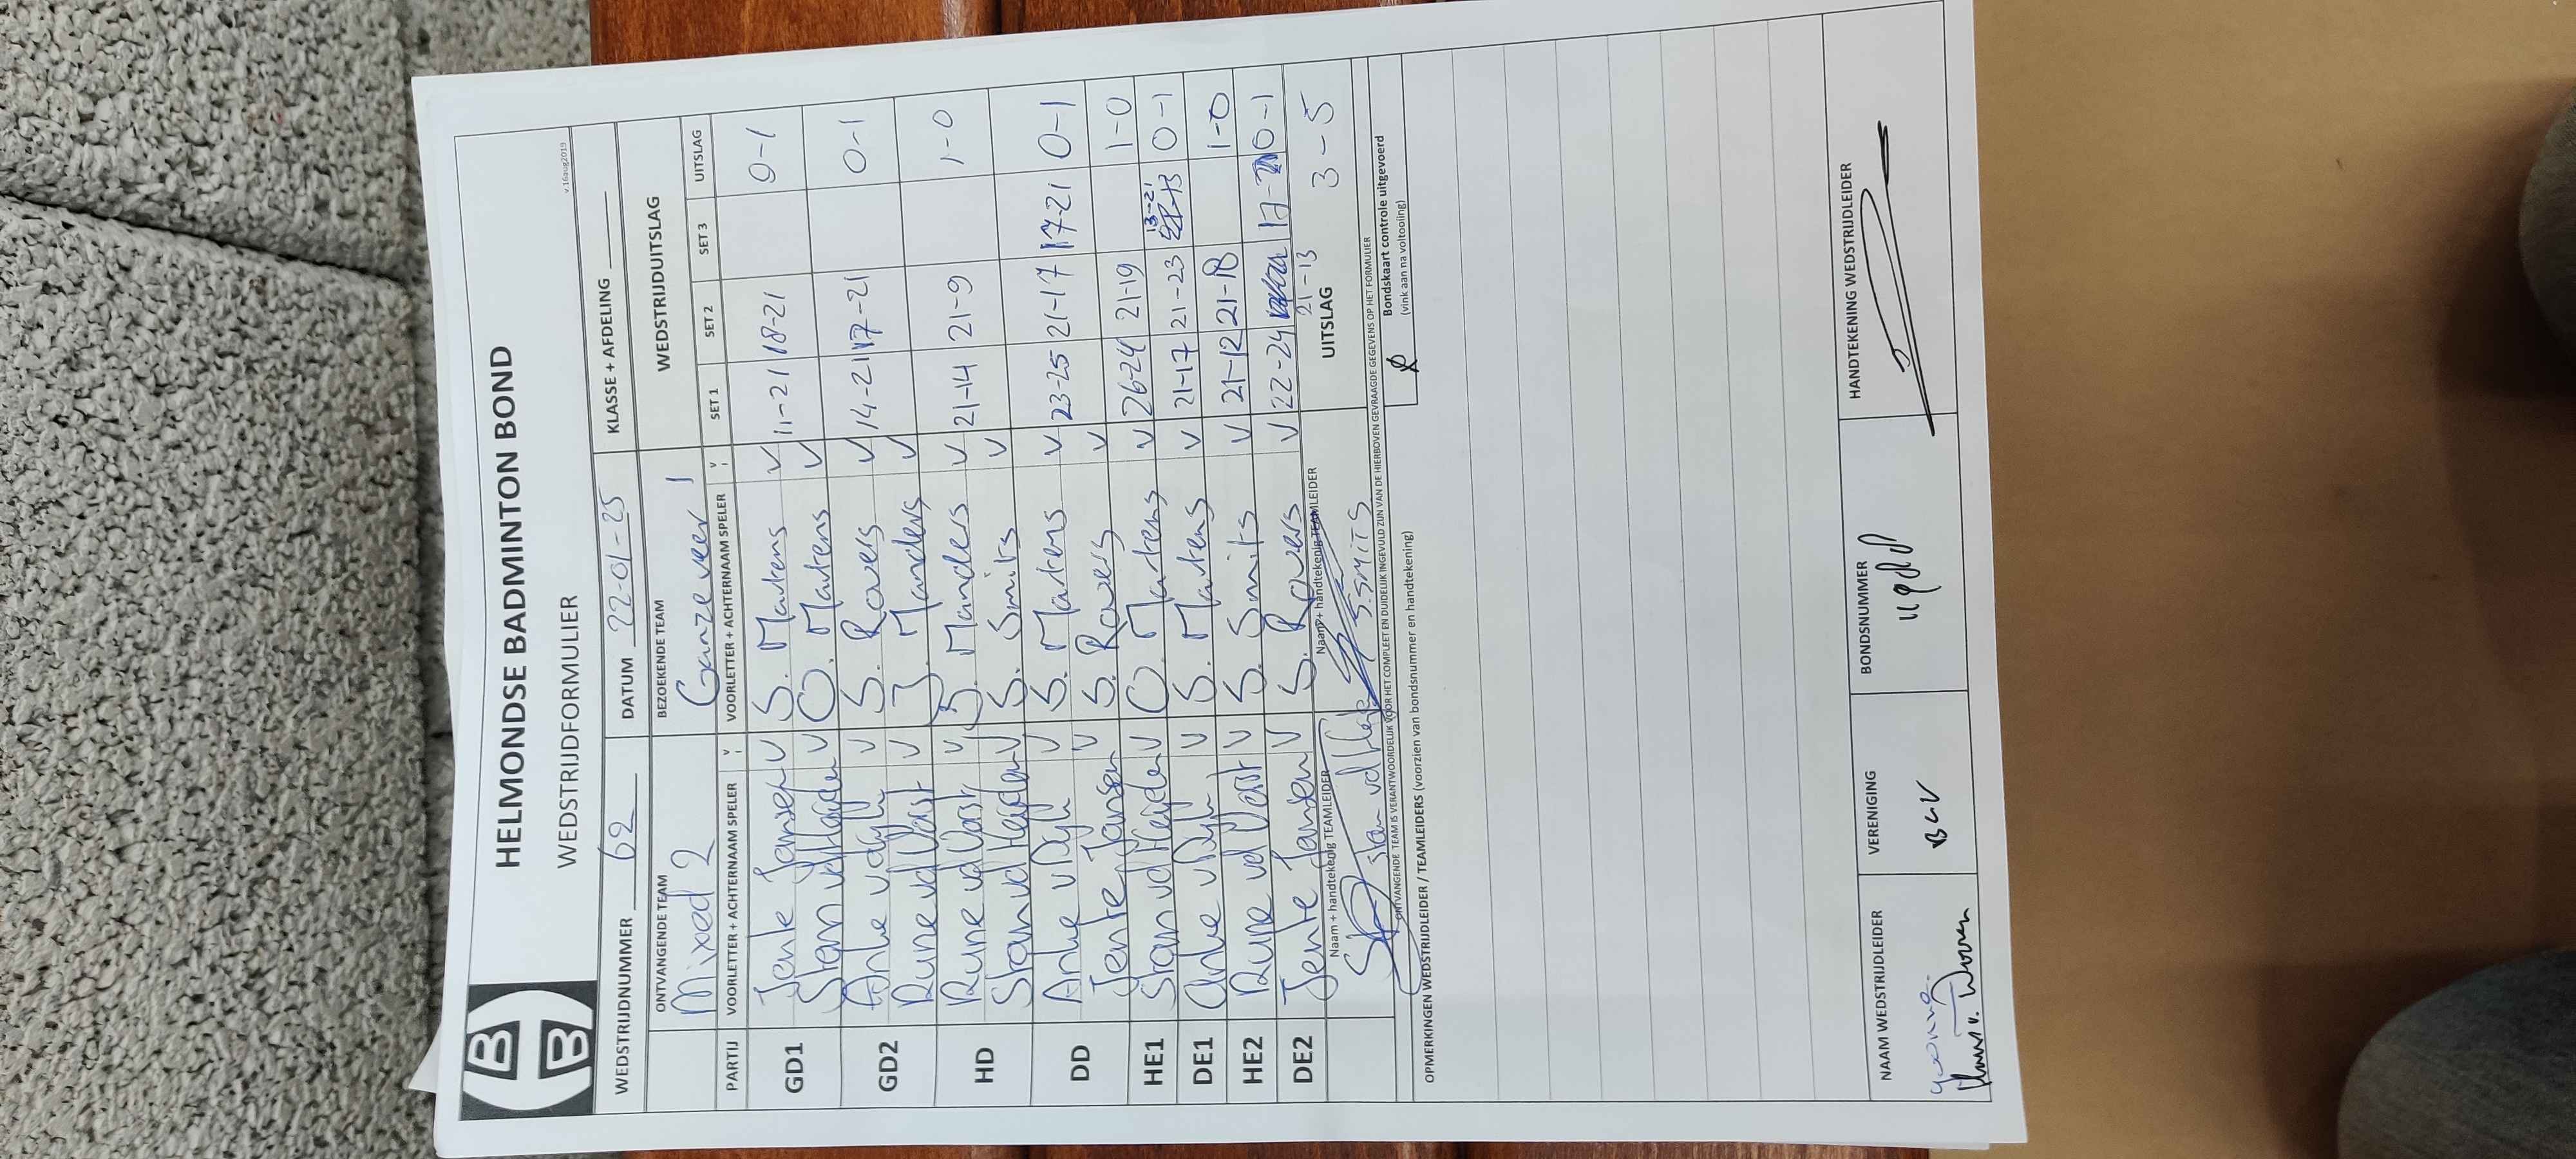 HELMONDSE BADMINTON BOND
WEDSTRIJDFORMULIER
v.16aug2019
WEDSTRIJDNUMMER 62 DATUM 22-01-25 KLASSE + AFDELING
ONTVANGENDE TEAM BEZOEKENDE TEAM WEDSTRIJDUITSLAG
Mixed 2 Ganzeveer 1
PARTIJ VOORLETTER + ACHTERNAAM SPELER V VOORLETTER + ACHTERNAAM SPELER V SET 1 SET 2 SET 3 UITSLAG
GD1 Jente Jansen V S. Martens V 11-21 18-21 0-1
Stan vd Heyden V O. Martens V
GD2 Anke v Dijk V S. Rovers V 14-21 17-21 0-1
Rune vd Vorst V J. Manders V
HD Rune vd Vorst V J. Manders V 21-14 21-9 1-0
Stan vd Heyden V S. Smits V
DD Anke v Dijk V S. Martens V 23-25 21-17 17-21 0-1
Jente Jansen V S. Rovers V
HE1 Stan vd Heyden V O. Martens V 26-24 21-19 1-0
DE1 Anke v Dijk V S. Martens V 21-17 21-23 13-21 0-1
HE2 Rune vd Vorst V S. Smits V 21-12 21-18 1-0
DE2 Jente Jansen V S. Rovers V 22-24 17- 0-1
21-13
Naam + handtekenig TEAMLEIDER Naam + handtekenig TEAMLEIDER UITSLAG 3-5
Stan vd Heyden S. SMITS
ONTVANGENDE TEAM IS VERANTWOORDELIJK VOOR HET COMPLEET EN DUIDELIJK INGEVULD ZIJN VAN DE HIERBOVEN GEVRAAGDE GEGEVENS OP HET FORMULIER
Bondskaart controle uitgevoerd
(vink aan na voltooiing)
OPMERKINGEN WEDSTRIJDLEIDER / TEAMLEIDERS (voorzien van bondsnummer en handtekening)
NAAM WEDSTRIJDLEIDER VERENIGING BONDSNUMMER HANDTEKENING WEDSTRIJDLEIDER
BCV